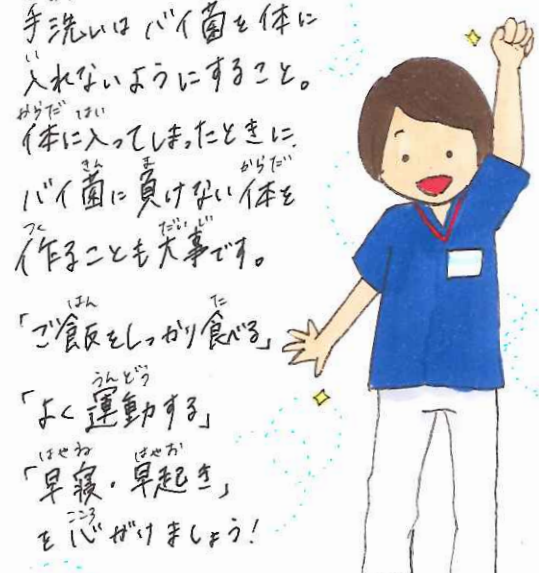 手洗いはバイ菌を体に
入れないようにすること。
体に入ってしまったときに、
バイ菌に負けない体を
作ることも大事です。
「ご飯をしっかり食べる」
「よく運動する」
「早寝・早起き」
を心がけましょう！